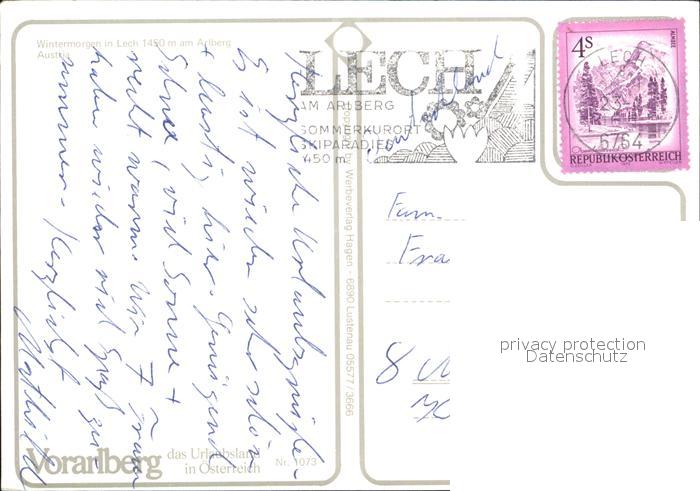 Wintermorgen in Lech 1450 m am Arlberg
Austria
Herzliche Urlaubsgrüße.
Es ist wieder sehr schön
+ lustig hier. Genügend
Schnee, viel Sonne +
recht warm. Wir 7 Frauen
haben wieder viel Spaß zu-
sammen. Herzlichst
Mathilde
LECH
AM ARLBERG
SOMMERKURORT
SKIPARADIES
1450 m
4S
ALMSEE
REPUBLIK ÖSTERREICH
LECH
6764
Copyright by Werbeverlag Hagen - 6890 Lustenau 05577/3666
Fam.
Fra
8
privacy protection
Datenschutz
Vorarlberg das Urlaubsland
in Österreich Nr. 1073